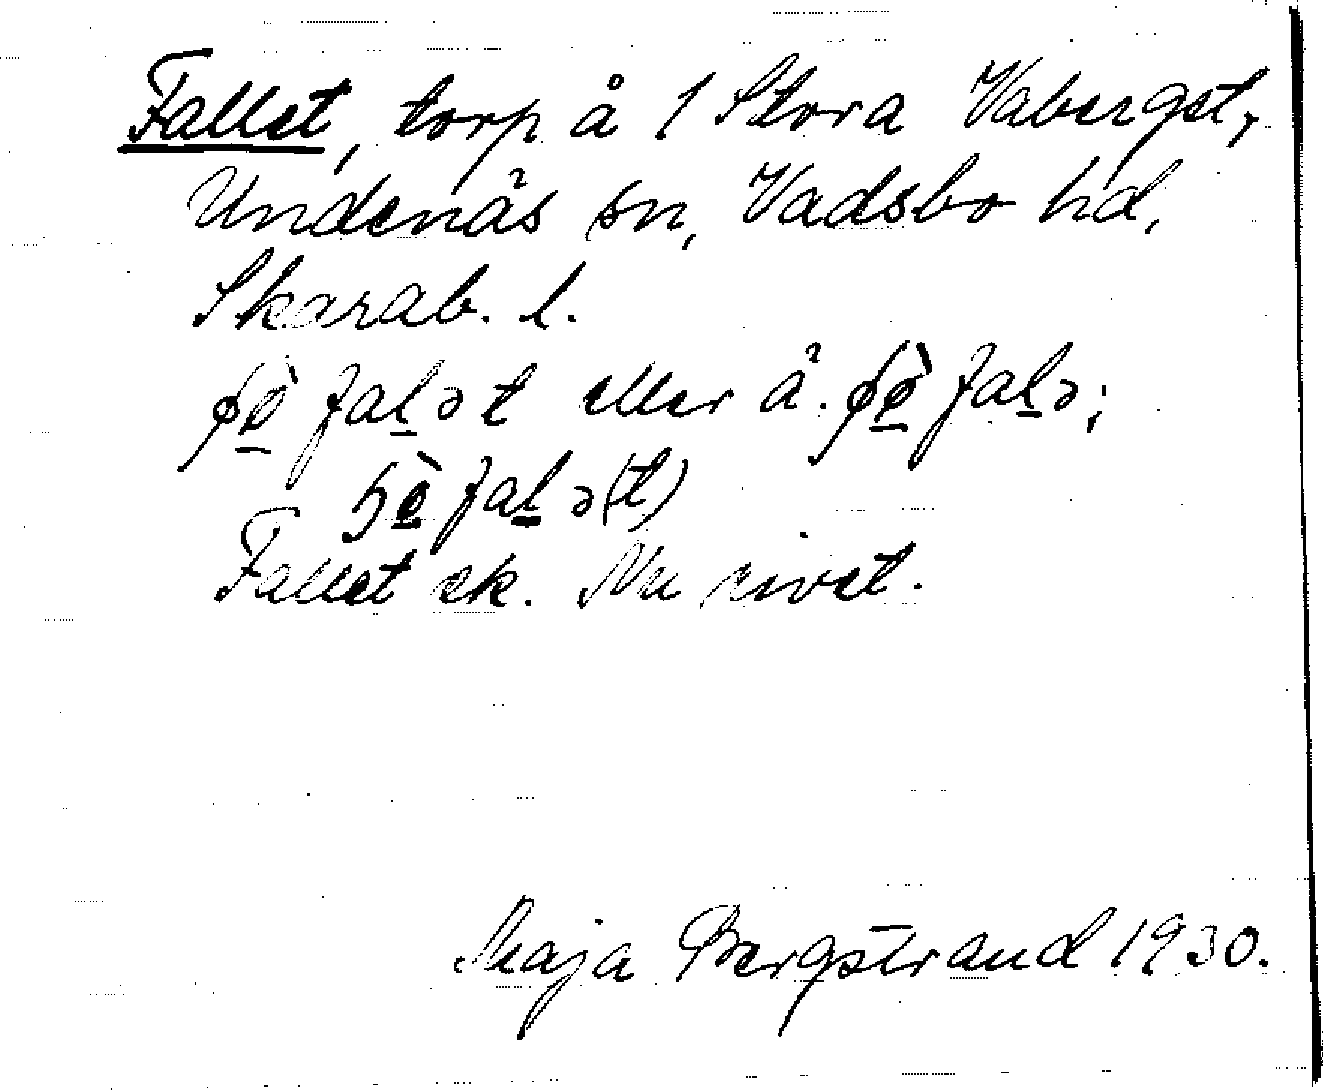 Fallet, torp å 1 Stora Vaberget,
Undenäs sn, Vadsbo hd,
Skarab. l.
falət eller ä. falə;
falə(t)
Fallet ek. Nu rivet.
Maja Bergstrand 1930.